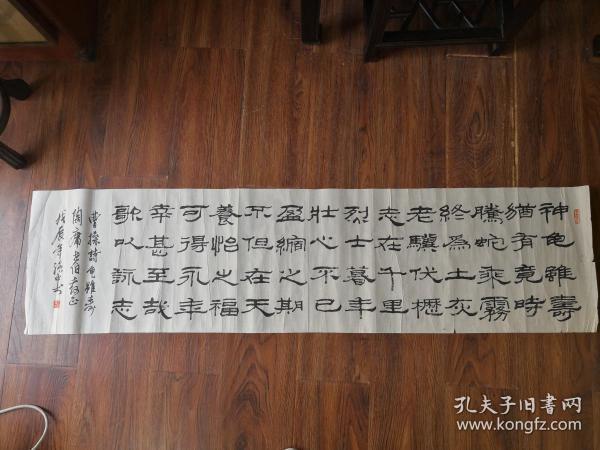 神龟雖壽
猶有竟時
騰蛇乘霧
終為土灰
老驥伏櫪
志在千里
烈士暮年
壯心不已
盈縮之期
不但在天
養怡之福
可得永年
幸甚至哉
歌以詠志
曹操詩龟雖壽
陶庸老伯教正
戊辰年
孔夫子旧书网
www.kongfz.com